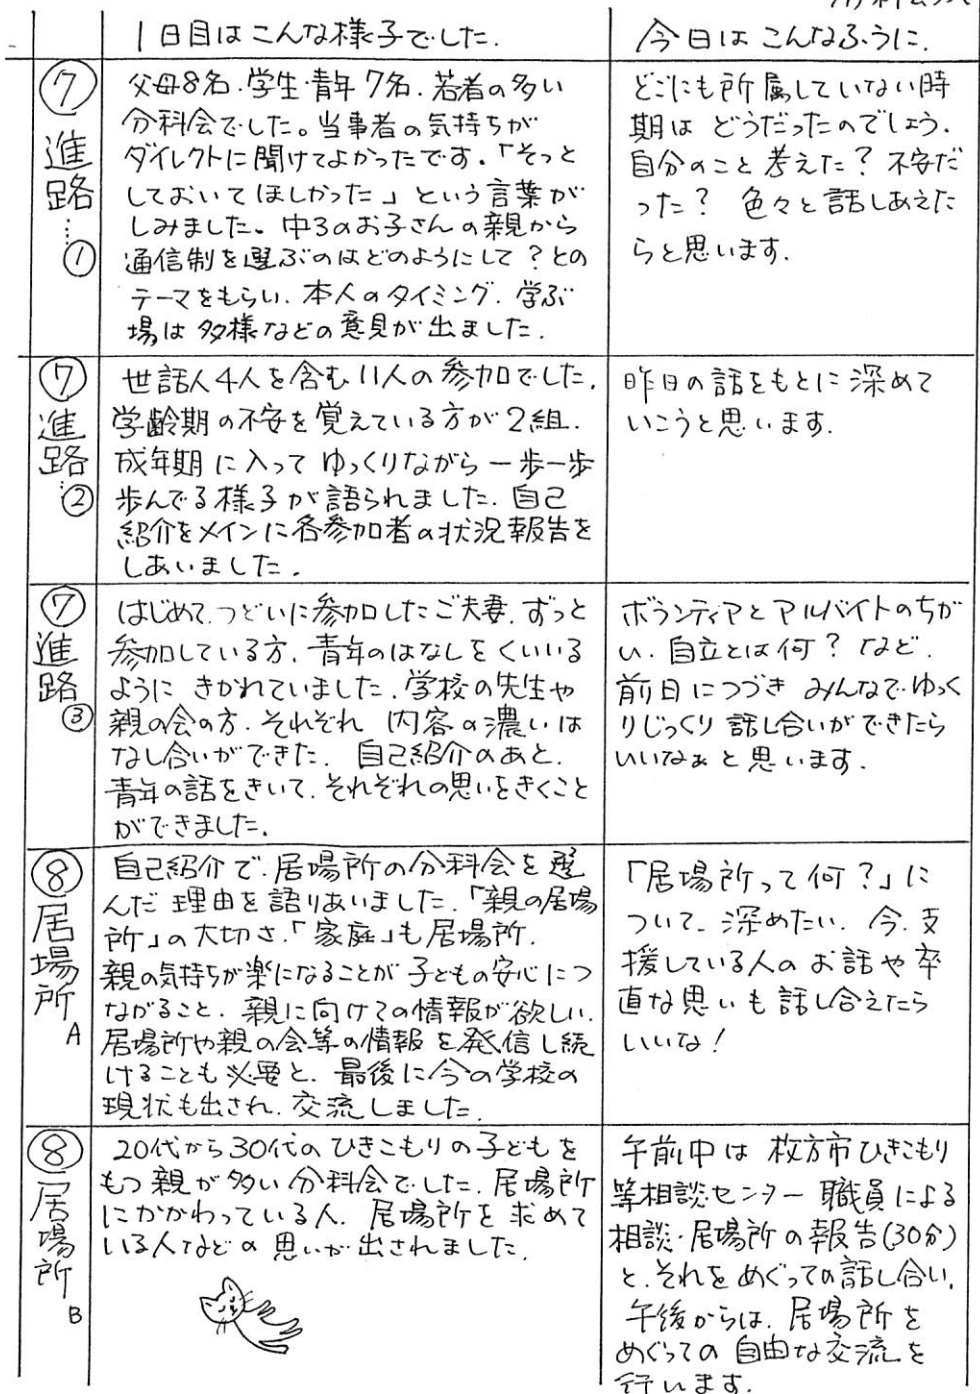 1日目はこんな様子でした.
今日は こんなふうに.
⑦
進路…①
父母8名.学生・青年7名.若者の多い
分科会でした。当事者の気持ちが
ダイレクトに聞けてよかったです.「そっと
しておいてほしかった」という言葉が
しみました. 中3のお子さんの親から
通信制を選ぶのはどのようにして?との
テーマをもらい. 本人のタイミング. 学ぶ
場は多様などの意見が出ました.
どこにも所属していない時
期は どうだったのでしょう.
自分のこと考えた? 不安だ
った? 色々と話しあえた
らと思います.
⑦
進路…②
世話人4人を含む11人の参加でした.
学齢期の不安を覚えている方が2組.
成年期に入って ゆっくりながら一歩一歩
歩んでる様子が語られました. 自己
紹介をメインに各参加者の状況報告を
しあいました.
昨日の話をもとに深めて
いこうと思います.
⑦
進路③
はじめて.つどいに参加したご夫妻. ずっと
参加している方. 青年のはなしをくいいる
ように きかれていました. 学校の先生や
親の会の方. それぞれ 内容の濃いは
なし合いができた. 自己紹介のあと.
青年の話をきいて. それぞれの思いをきくこと
ができました.
ボランティアとアルバイトのちが
い. 自立とは何? など.
前日につづき みんなでゆっく
りじっくり 話し合いができたら
いいなぁと思います.
⑧
居場所A
自己紹介で. 居場所の分科会を選
んだ理由を語りあいました.「親の居場
所」の大切さ.「家庭」も居場所.
親の気持ちが楽になることが 子どもの安心につ
ながること. 親に向けての情報が欲しい.
居場所や親の会等の情報を発信し続
けることも必要と. 最後に今の学校の
現状も出され. 交流しました.
「居場所って何?」に
ついて. 深めたい. 今.支
援している人のお話や率
直な思いも話し合えたら
いいな!
⑧
居場所B
20代から30代のひきこもりの子どもを
もつ親が多い分科会でした. 居場所
にかかわっている人. 居場所を求めて
いる人などの思いが出されました.
午前中は 枚方市ひきこもり
等相談センター職員による
相談・居場所の報告(30分)
と. それをめぐっての話し合い.
午後からは. 居場所を
めぐっての自由な交流を
行います.